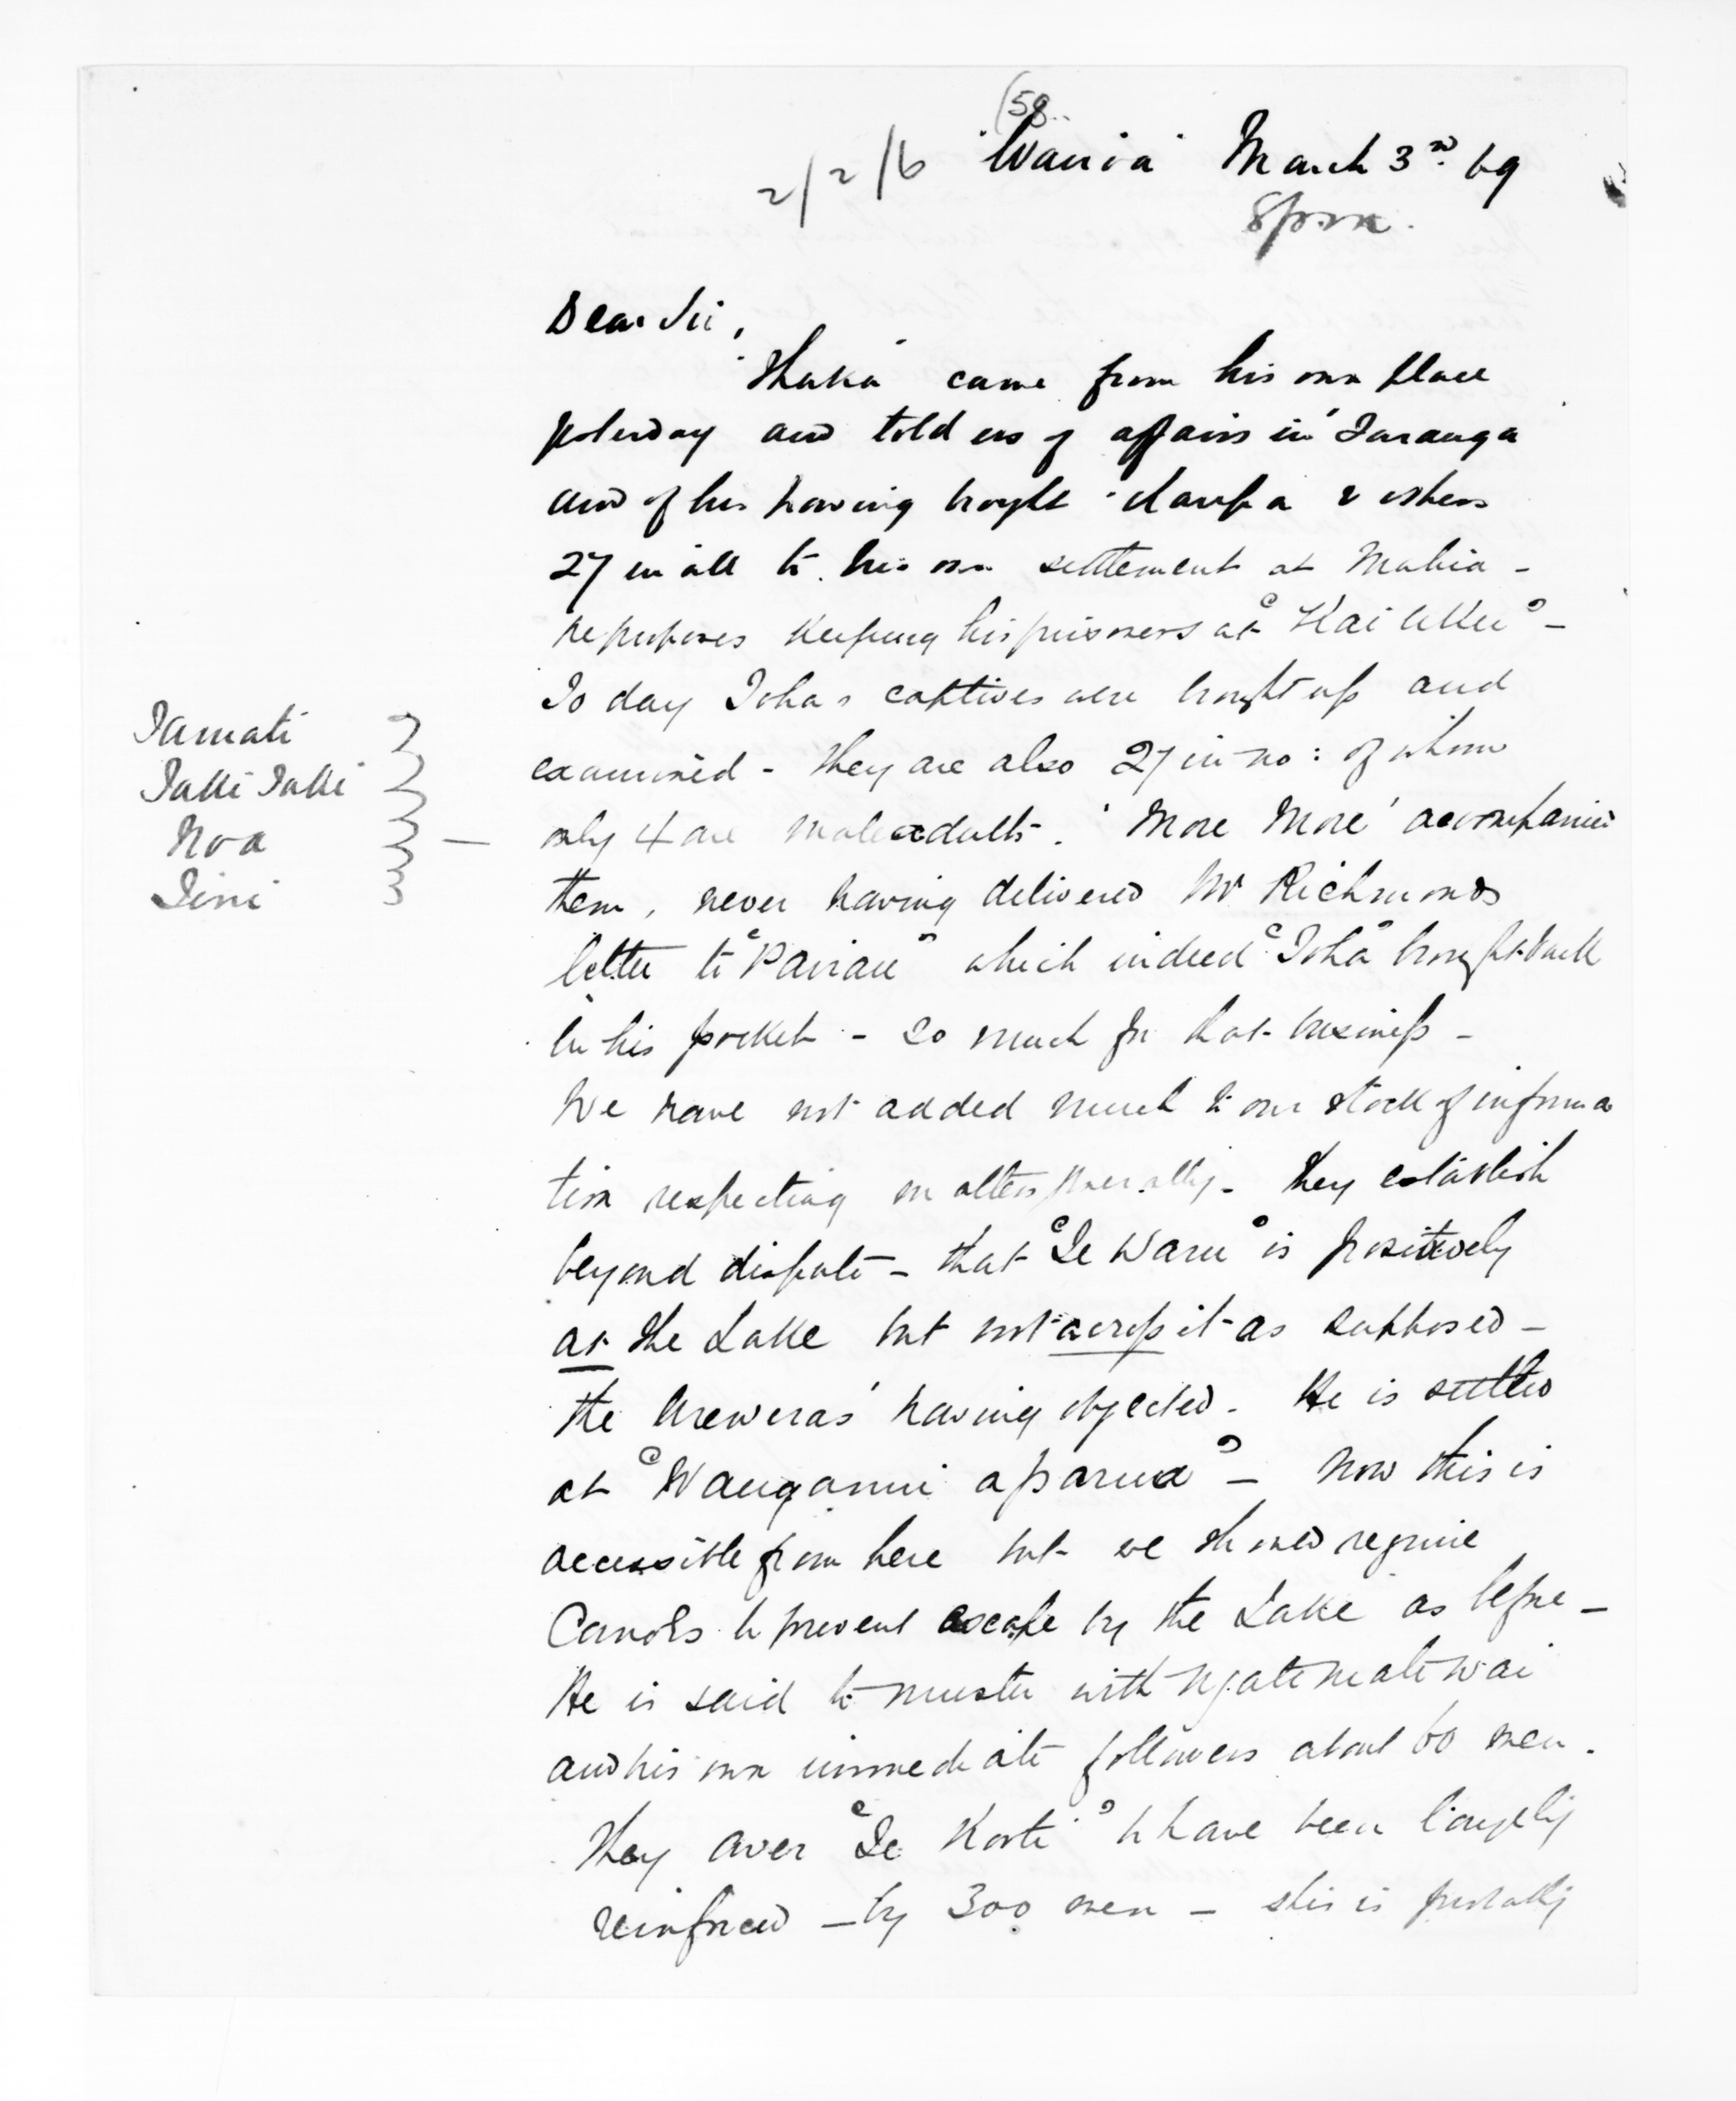 (58..
2/2/6 "Wairoa" March 3rd 69
8pm.
Dear Sir,
"Ihaka" came from his own place
yesterday and told us of affairs in Turanga
and of his having brought & others
27 in all to his own settlement at Mahia -
he proposes keeping his prisoners at "Kai Uku" -
To day Tohas captives were brought up and
Tamati
examined - they are also 27 in no: of whom
Taki Taki
only 4 are male adults. 'More More' accompanied
Noa
them, never having delivered Mr Richmonds
letter to "Pairau" which indeed "Toha" brought back
in his pocket - so much for that business -
We have not added much to our stock of informa
tion respecting matters generally. They establish
beyond dispute - that "Te Waru" is positively
at the Lake but not across it as supposed -
the Urewera's having objected. He is settled
at "Wanganui a parua" - now this is
accessible from here but we should require
Canoes to prevent escape by the Lake as before -
He is said to muster with Ngatimatewai
and his own immediate followers about 60 men.
They aver "Te Kooti" to have been largely
reinforced - by 300 men - this is probably